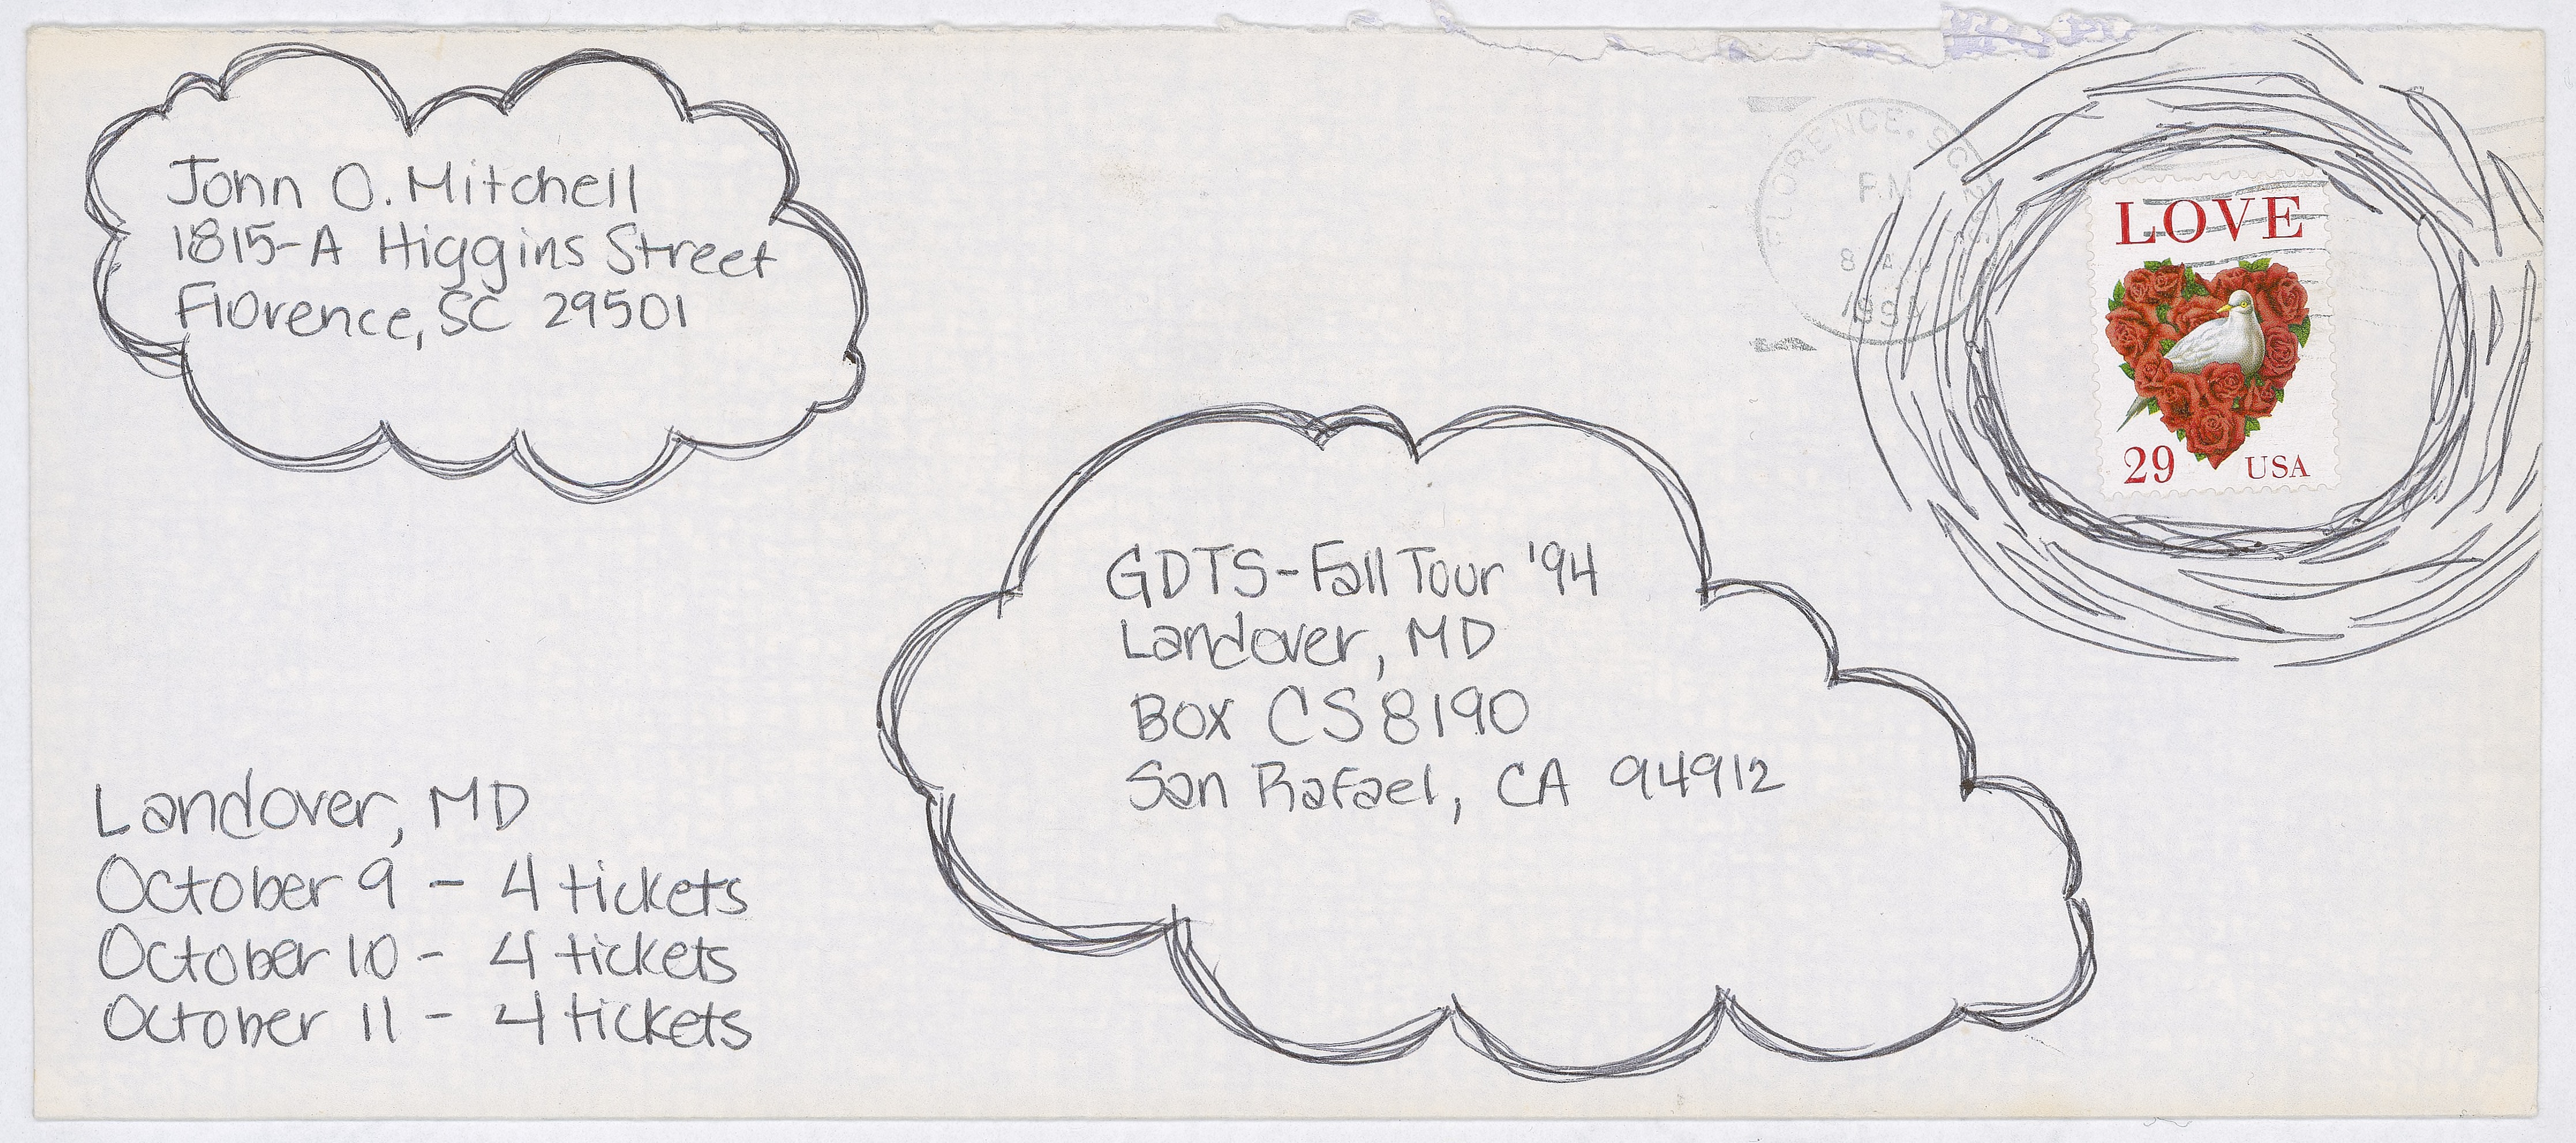 John O. Mitchell
1815-A Higgins Street
Florence, SC 29501
FLORENCE, SC
PM
8
LOVE
29 USA
GDTS-Fall Tour '94
Landover, MD
Box CS 8190
San Rafael, CA 94912
Landover, MD
October 9 - 4 tickets
October 10 - 4 tickets
October 11 - 4 tickets